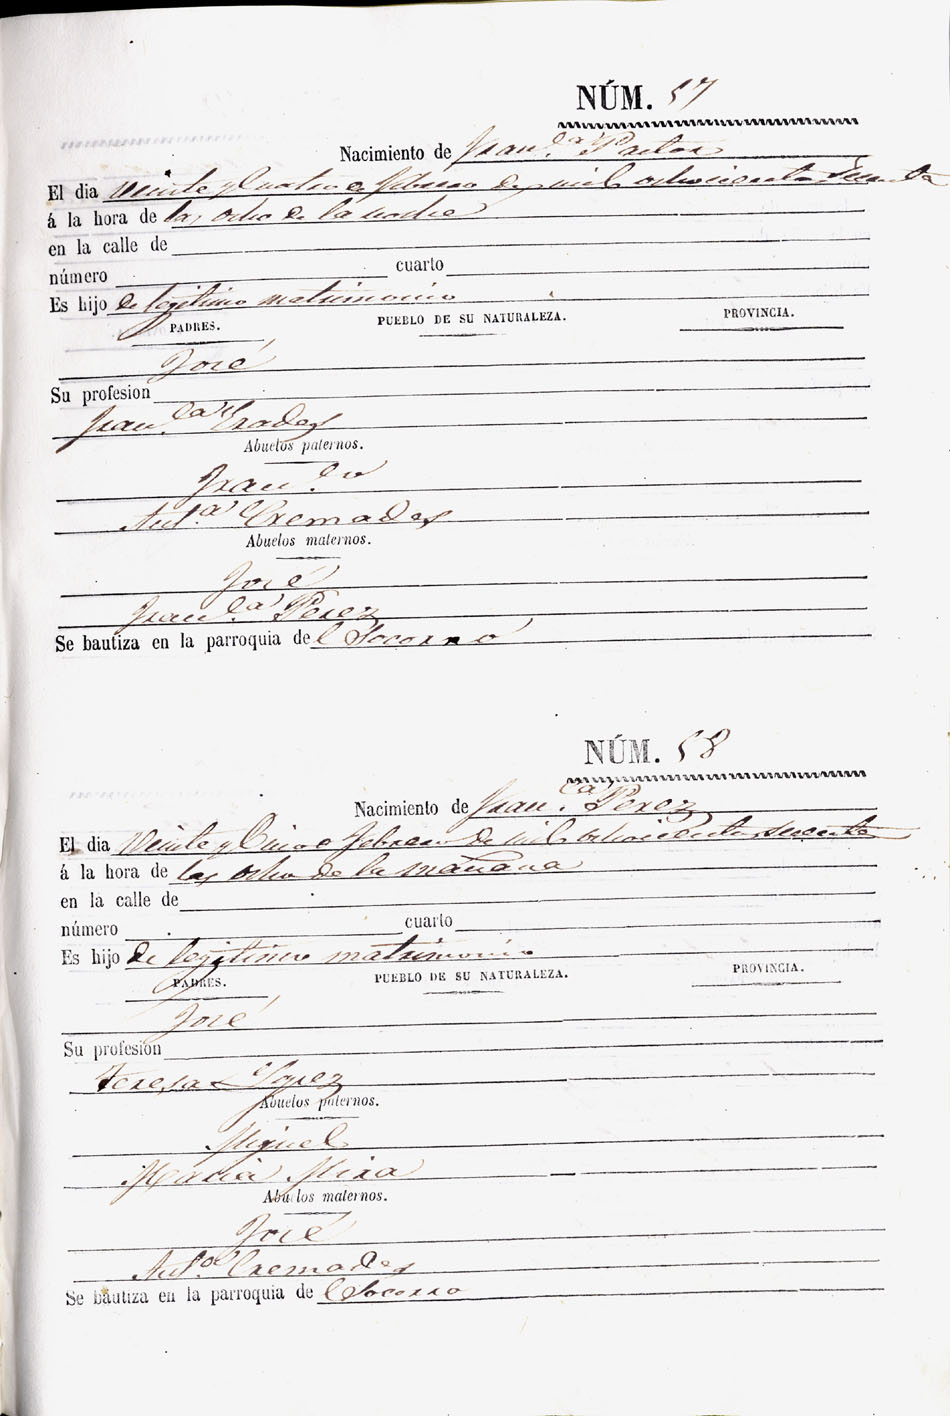 NÚM. 57
Nacimiento de Fran.ca Pastor
El dia veinte y Cuatro febrero de mil ochocientos sesenta
á la hora de las ocho de la noche
en la calle de
número cuarto
Es hijo de legitimo matrimonio
PADRES. PUEBLO DE SU NATURALEZA. PROVINCIA.
José
Su profesion
Fran.ca Prades
Abuelos paternos.
Fran.co
Ant.a Cremades
Abuelos maternos.
José
Fran.ca Perez
Se bautiza en la parroquia del Socorro
NÚM. 58
Nacimiento de Fran.ca Perez
El dia Veinte y Cinco febrero de mil ochocientos sesenta
á la hora de las ocho de la mañana
en la calle de
número cuarto
Es hijo de legitimo matrimonio
PADRES. PUEBLO DE SU NATURALEZA. PROVINCIA.
José
Su profesion
Teresa Lopez
Abuelos paternos.
Miguel
Maria Mira
Abuelos maternos.
José
Ant.a Cremades
Se bautiza en la parroquia de l Socorro